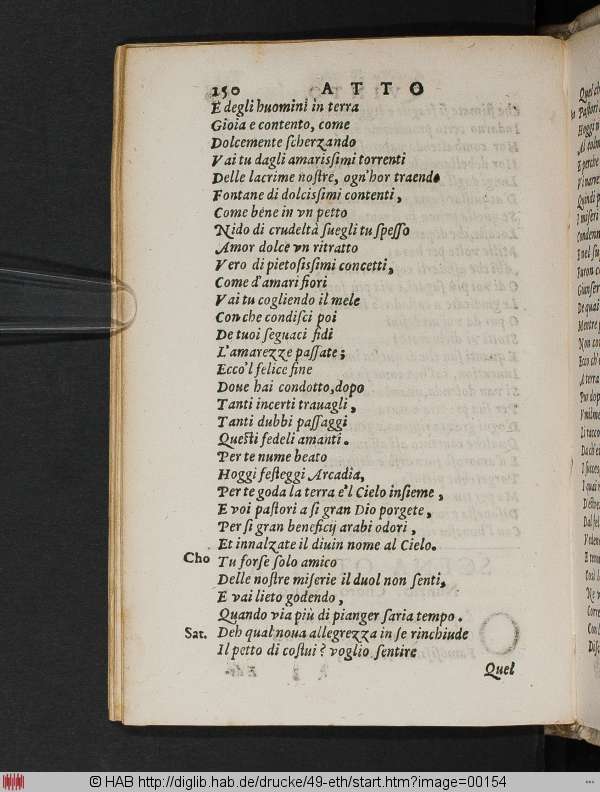 150 ATTO
E degli huomini in terra
Gioia e contento, come
Dolcemente ſcherzando
Vai tu dagli amariſſimi torrenti
Delle lacrime noſtre, ogn'hor traendo
Fontane di dolciſſimi contenti,
Come bene in vn petto
Nido di crudeltà ſuegli tu ſpeſſo
Amor dolce vn ritratto
Vero di pietoſiſſimi concetti,
Come d'amari fiori
Vai tu cogliendo il mele
Con che condiſci poi
De tuoi ſeguaci fidi
L'amarezze paſſate;
Ecco'l felice fine
Doue hai condotto, dopo
Tanti incerti trauagli,
Tanti dubbi paſſaggi
Queſti fedeli amanti.
Per te nume beato
Hoggi feſteggi Arcadia,
Per te goda la terra e'l Cielo inſieme,
E voi paſtori a ſi gran Dio porgete,
Per ſi gran beneficij arabi odori,
Et innalzate il diuin nome al Cielo.
Cho Tu forſe ſolo amico
Delle noſtre miſerie il duol non ſenti,
E vai lieto godendo,
Quando via più di pianger ſaria tempo.
Sat. Deh qual noua allegrezza in ſe rinchiude
Il petto di coſtui? voglio ſentire
Quel
© HAB http://diglib.hab.de/drucke/49-eth/start.htm?image=00154